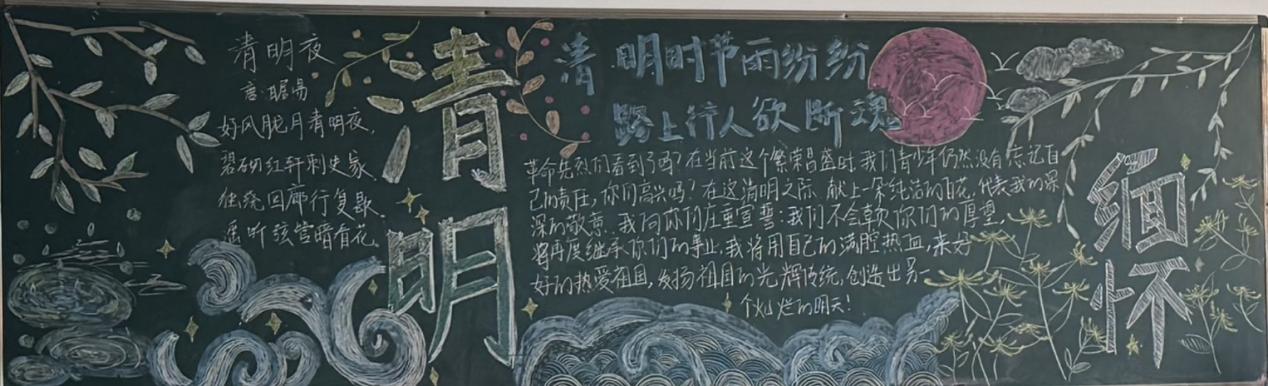 清明夜
白居易
好风胧月清明夜,
碧砌红轩刺史家.
独绕回廊行复歇.
遥听弦管暗看花.
清明
清明时节雨纷纷
路上行人欲断魂
革命先烈们看到了吗?在当前这个繁荣昌盛时,我们青少年仍然没有忘记自
己的责任,你们高兴吗?在这清明之际,献上一朵纯洁的白花,代表我的深
深的敬意.我向你们庄重宣誓:我们不会辜负你们的厚望,
将再度继承你们的事业,我将用自己的满腔热血,来好
好的热爱祖国,发扬祖国的光辉传统,创造出另一
个灿烂的明天!
缅怀